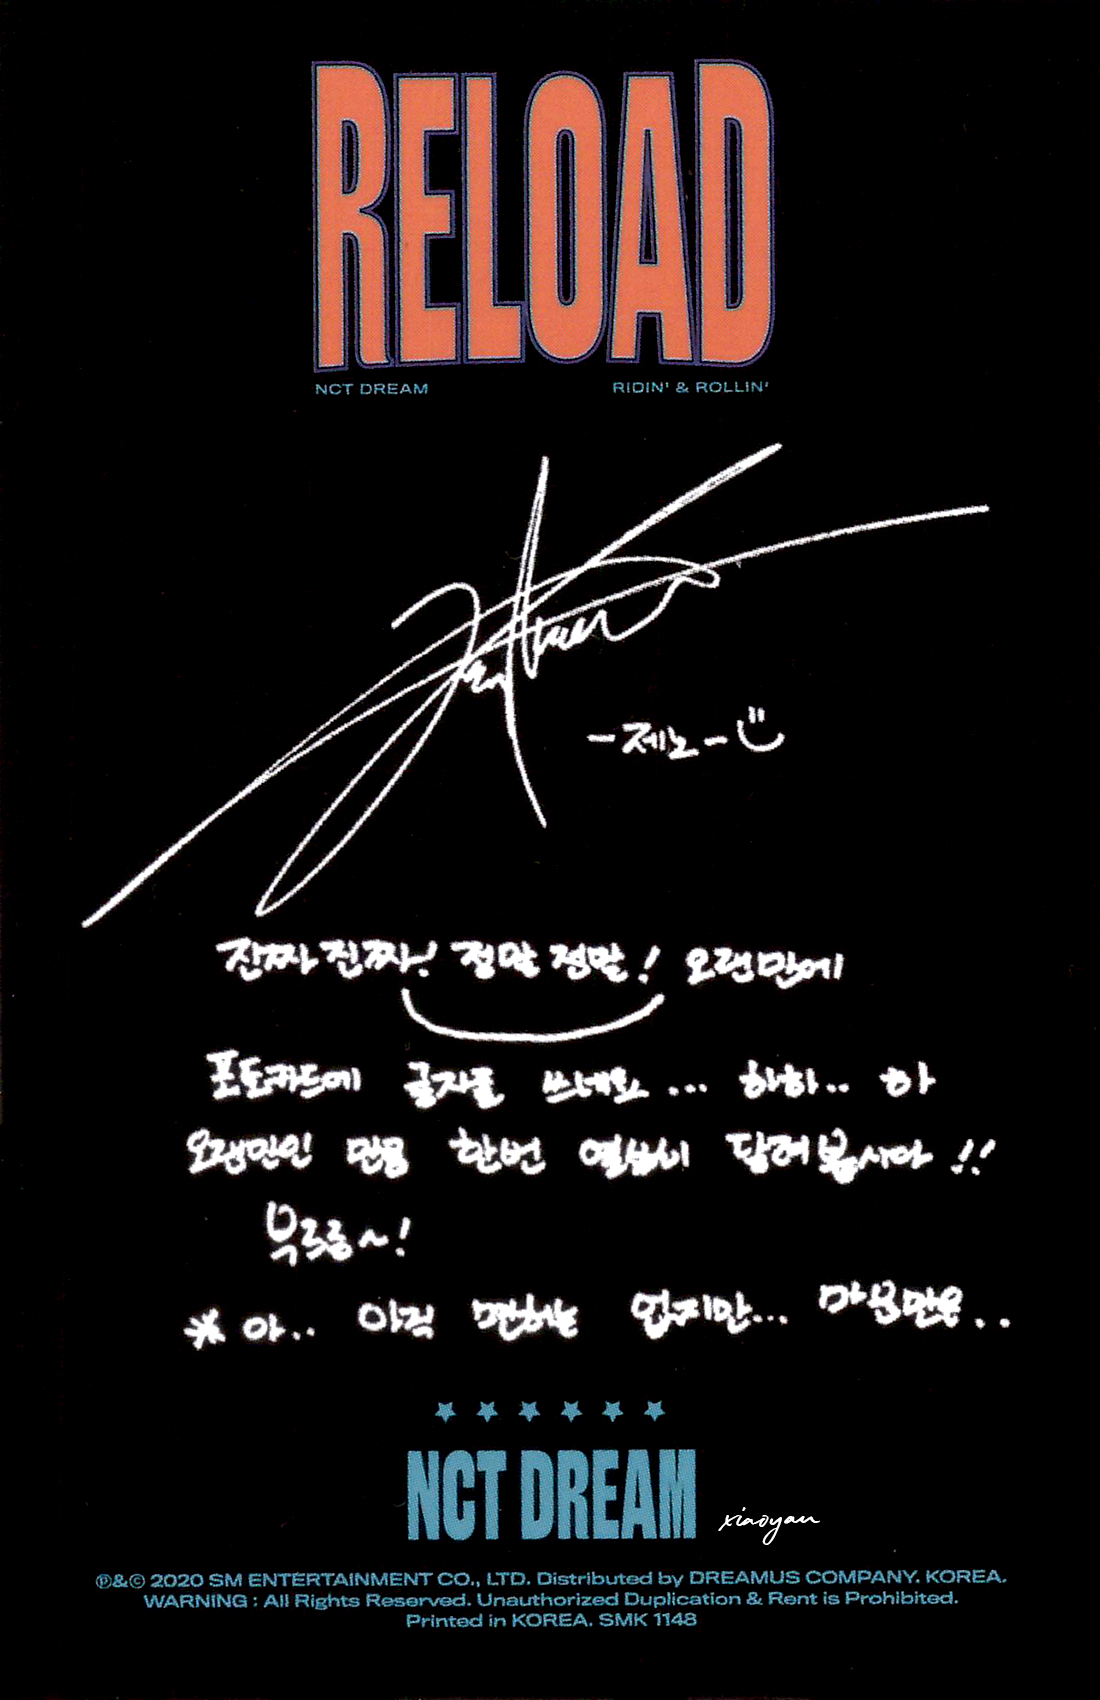 RELOAD
NCT DREAM RIDIN' & ROLLIN'
-제노-
진짜 진짜! 정말 정말! 오랜만에
포토카드에 글자를 쓰네요... 하하.. 하
오랜만인 만큼 한번 열심히 달려봅시다!!
부르릉~!
※ 아.. 아직 면허는 없지만... 마음만은..
NCT DREAM
xiaoyan
℗&© 2020 SM ENTERTAINMENT CO., LTD. Distributed by DREAMUS COMPANY. KOREA.
WARNING : All Rights Reserved. Unauthorized Duplication & Rent is Prohibited.
Printed in KOREA. SMK 1148